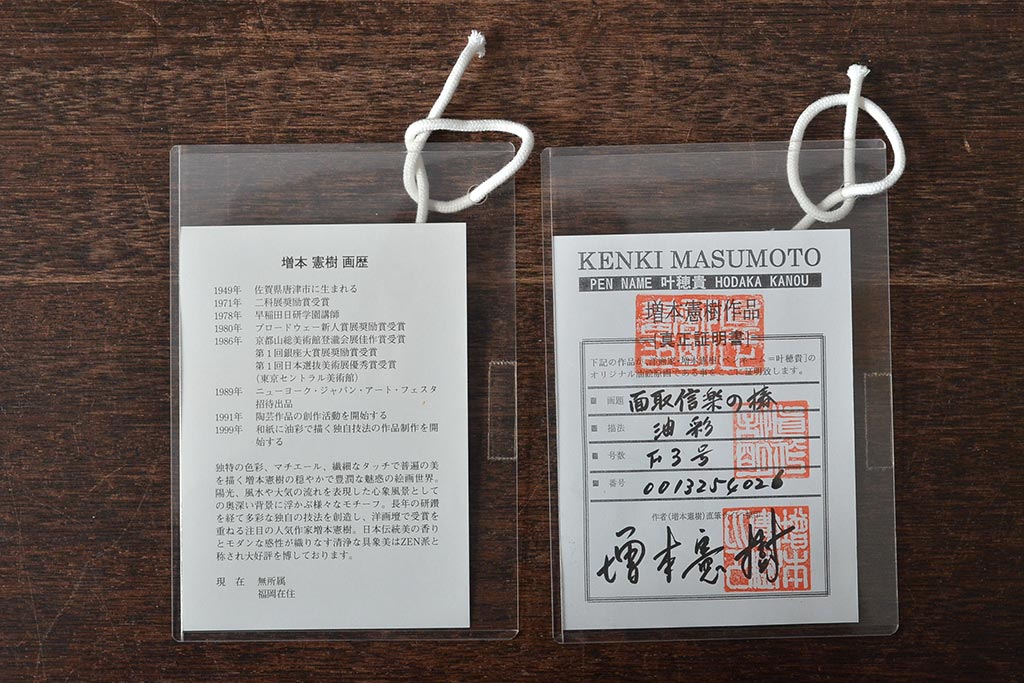 増本 憲樹 画歴
1949年 佐賀県唐津市に生まれる
1971年 二科展奨励賞受賞
1978年 早稲田日研学園講師
1980年 ブロードウェー新人賞展奨励賞受賞
1986年 京都山総美術館登瀧会展佳作賞受賞
第1回銀座大賞展奨励賞受賞
第1回日本選抜美術展優秀賞受賞
(東京セントラル美術館)
1989年 ニューヨーク・ジャパン・アート・フェスタ
招待出品
1991年 陶芸作品の創作活動を開始する
1999年 和紙に油彩で描く独自技法の作品制作を開
始する
独特の色彩、マチエール、繊細なタッチで普遍の美
を描く増本憲樹の穏やかで豊潤な魅惑の絵画世界。
陽光、風水や大気の流れを表現した心象風景として
の奥深い背景に浮かぶ様々なモチーフ。長年の研鑽
を経て多彩な独自の技法を創造し、洋画壇で受賞を
重ねる注目の人気作家増本憲樹。日本伝統美の香り
とモダンな感性が織りなす清浄な具象美はZEN派と
称され大好評を博しております。
現 在 無所属
福岡在住
KENKI MASUMOTO
PEN NAME 叶穂貴 HODAKA KANOU
増本憲樹作品
[真正証明書]
下記の作品が、 増本憲樹 =叶穂貴]の
オリジナル 原画である事をここに証明致します。
画題 面取信楽の椿
描法 油彩
号数 3号
番号 0013254026
作者(増本憲樹)直筆サイン
増本憲樹